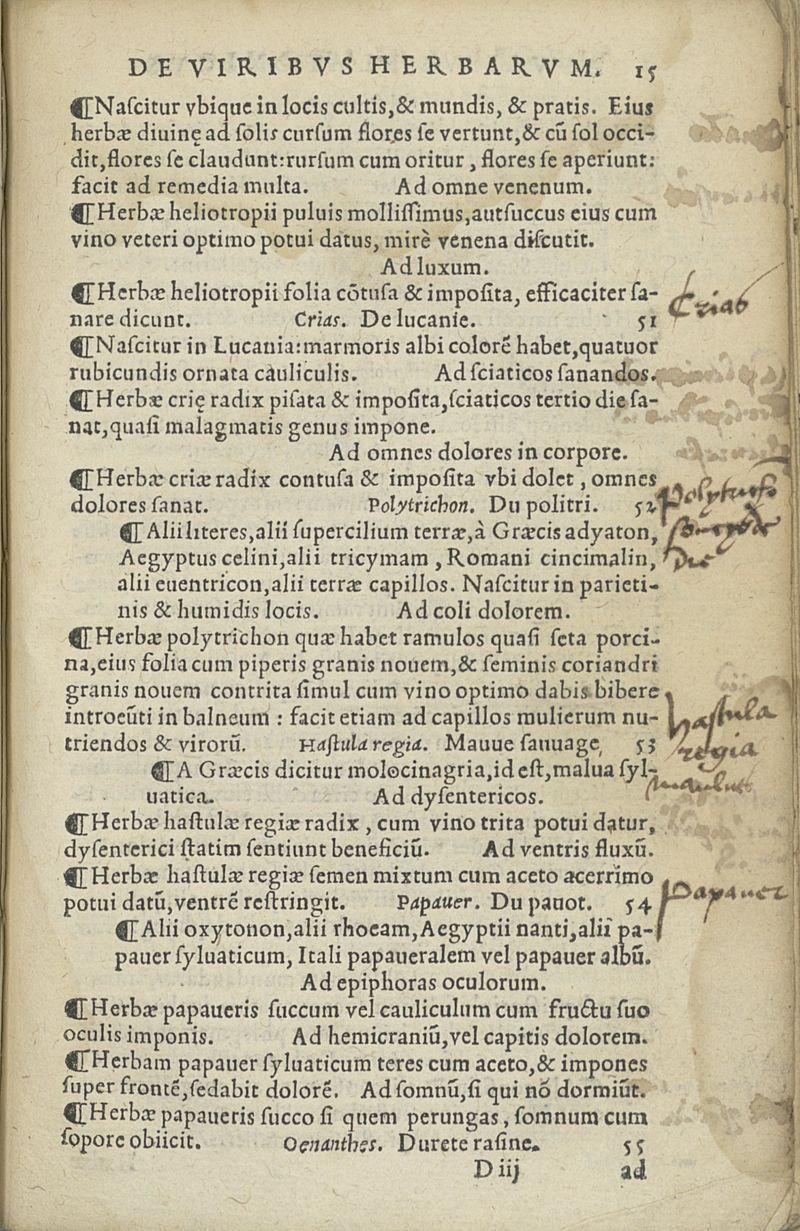 DE VIRIBVS HERBARVM. 15
¶Naſcitur vbique in locis cultis,& mundis, & pratis. Eius
herbæ diuinę ad ſolis curſum flores ſe vertunt,& cū ſol occi-
dit,flores ſe claudunt:rurſum cum oritur, flores ſe aperiunt:
facit ad remedia multa. Ad omne venenum.
¶Herbæ heliotropii puluis molliſſimus,autſuccus eius cum
vino veteri optimo potui datus, mirè venena diſcutit.
Ad luxum.
¶Herbæ heliotropii folia cōtuſa & impoſita, efficaciter ſa-
nare dicunt. Crias. De lucanie. 51
Crias
¶Naſcitur in Lucania:marmoris albi colorē habet,quatuor
rubicundis ornata cauliculis. Ad ſciaticos ſanandos.
¶Herbæ crię radix piſata & impoſita,ſciaticos tertio die ſa-
nat,quaſi malagmatis genus impone.
Ad omnes dolores in corpore.
¶Herbæ criæ radix contuſa & impoſita vbi dolet, omnes
dolores ſanat. Polytrichon. Du politri. 52
¶Alii iteres,alii ſupercilium terræ,à Græcis adyaton,
Aegyptus celini,alii tricymam, Romani cincimalin,
alii euentricon,alii terræ capillos. Naſcitur in parieti-
nis & humidis locis. Ad coli dolorem.
¶Herbæ polytrichon quæ habet ramulos quaſi ſeta porci-
na,eius folia cum piperis granis nouem,& ſeminis coriandri
granis nouem contrita ſimul cum vino optimo dabis bibere
introeūti in balneum : facit etiam ad capillos mulierum nu-
triendos & virorū. Haſtula regia. Mauue ſauuage, 53
haſtula
regia
¶A Græcis dicitur molocinagria,id eſt,malua ſyl-
uatica. Ad dyſentericos.
¶Herbæ haſtulæ regiæ radix, cum vino trita potui datur,
dyſenterici ſtatim ſentiunt beneficiū. Ad ventris fluxū.
¶Herbæ haſtulæ regiæ ſemen mixtum cum aceto acerrimo
potui datū,ventrē reſtringit. Papauer. Du pauot. 54
Papauer
¶Alii oxytonon,alii rhoeam,Aegyptii nanti,alii pa-
pauer ſyluaticum, Itali papaueralem vel papauer albū.
Ad epiphoras oculorum.
¶Herbæ papaueris ſuccum vel cauliculum cum fructu ſuo
oculis imponis. Ad hemicraniū,vel capitis dolorem.
¶Herbam papauer ſyluaticum teres cum aceto,& impones
ſuper frontē,ſedabit dolorē. Ad ſomnū,ſi qui nō dormiūt.
¶Herbæ papaueris ſucco ſi quem perungas, ſomnum cum
ſopore obiicit. Oenanthes. Durete raſine. 55
D iij ad